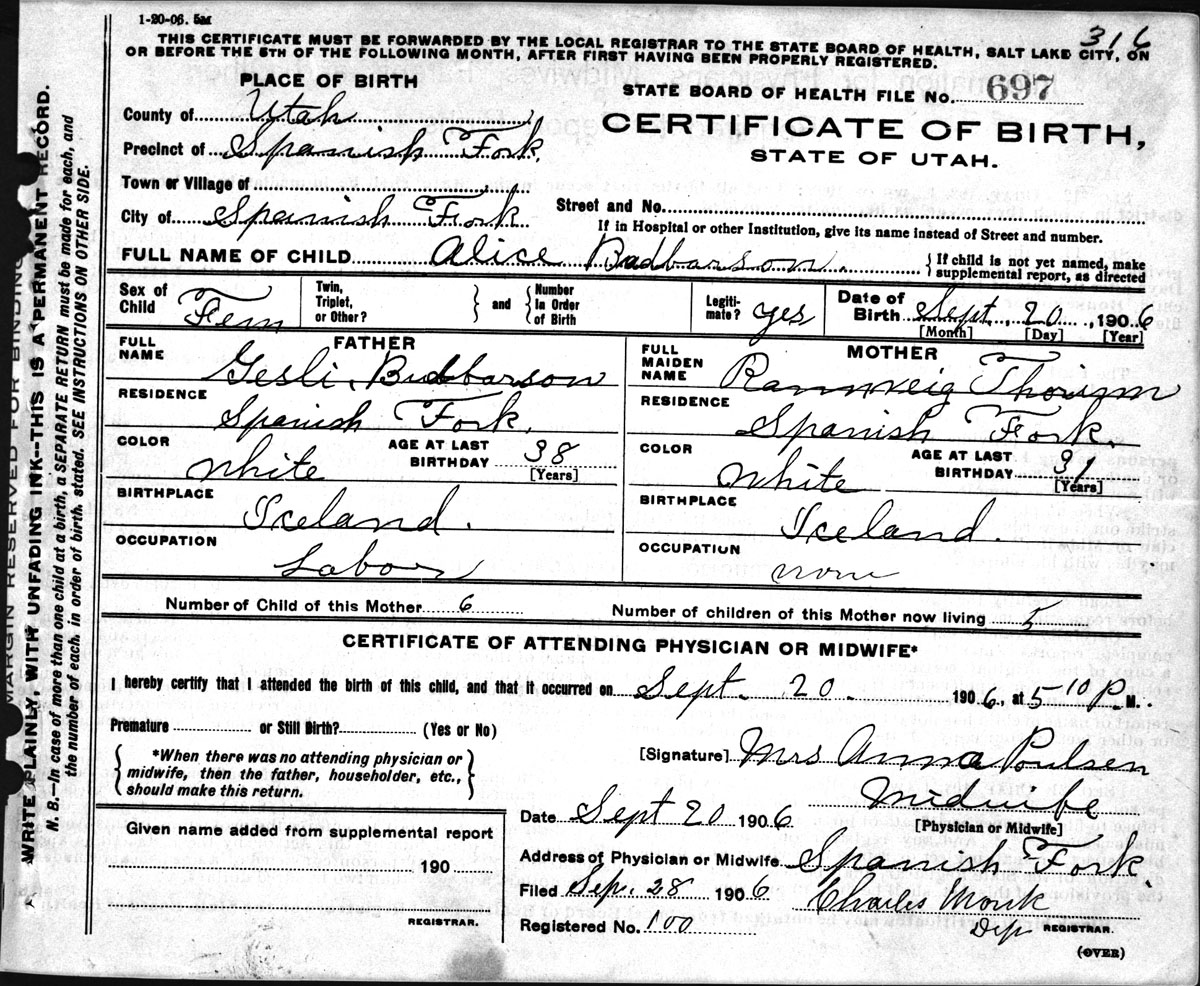 1-20-06. 5M
316
THIS CERTIFICATE MUST BE FORWARDED BY THE LOCAL REGISTRAR TO THE STATE BOARD OF HEALTH, SALT LAKE CITY, ON
OR BEFORE THE 5TH OF THE FOLLOWING MONTH, AFTER FIRST HAVING BEEN PROPERLY REGISTERED.
PLACE OF BIRTH
STATE BOARD OF HEALTH FILE NO. 697
County of Utah
CERTIFICATE OF BIRTH,
Precinct of Spanish Fork
STATE OF UTAH.
Town or Village of
City of Spanish Fork
Street and No.
If in Hospital or other Institution, give its name instead of Street and number.
FULL NAME OF CHILD Alice Budbarson.
{If child is not yet named, make
supplemental report, as directed
Sex of Child Fem
Twin, Triplet, or Other? } and { Number in Order of Birth
Legitimate? yes
Date of Birth Sept. 20, 1906
[Month] [Day] [Year]
FATHER
FULL NAME Gesli. Budbarson
RESIDENCE Spanish Fork.
COLOR White
AGE AT LAST BIRTHDAY 38 [Years]
BIRTHPLACE Iceland.
OCCUPATION Labor
MOTHER
FULL MAIDEN NAME Rannveig
RESIDENCE Spanish Fork.
COLOR White
AGE AT LAST BIRTHDAY 31 [Years]
BIRTHPLACE Iceland.
OCCUPATION none
Number of Child of this Mother 6
Number of children of this Mother now living 5
CERTIFICATE OF ATTENDING PHYSICIAN OR MIDWIFE*
I hereby certify that I attended the birth of this child, and that it occurred on Sept. 20. 1906, at 5 10 P. M.
Premature or Still Birth? (Yes or No)
{*When there was no attending physician or
midwife, then the father, householder, etc.,
should make this return.}
[Signature] Mrs Anna Poulsen
Midwife
[Physician or Midwife]
Date Sept 20 1906
Address of Physician or Midwife Spanish Fork
Filed Sep. 28 1906
Charles Monk
Registered No. 100
Dep REGISTRAR.
(OVER)
Given name added from supplemental report
190
REGISTRAR.
MARGIN RESERVED FOR BINDING
WRITE PLAINLY, WITH UNFADING INK--THIS IS A PERMANENT RECORD.
N. B.—In case of more than one child at a birth, a SEPARATE RETURN must be made for each, and
the number of each, in order of birth, stated. SEE INSTRUCTIONS ON OTHER SIDE.